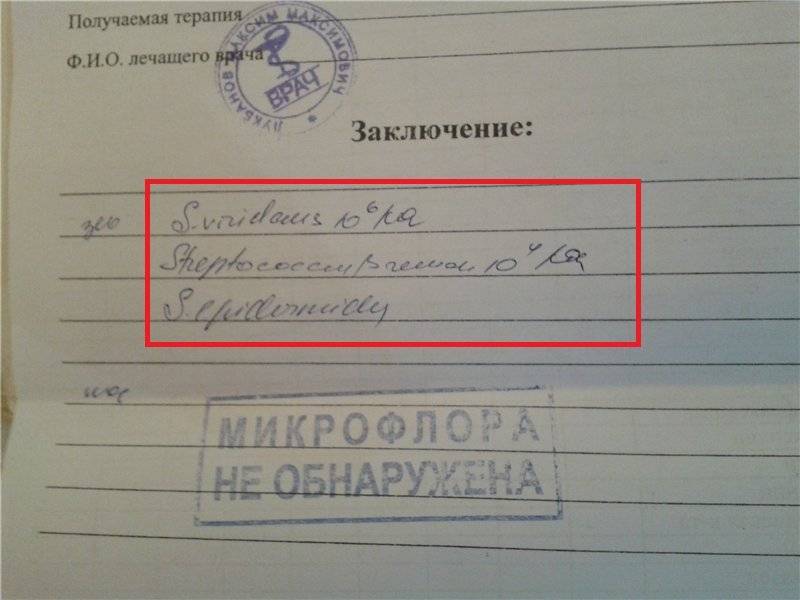 Получаемая терапия
Ф.И.О. лечащего врача
ЛУКБАНОВ МАКСИМ МАКСИМОВИЧ
ВРАЧ
Заключение:
зев S. viridans 10⁶ КОЕ
Streptococcus β гемол 10⁴ КОЕ
S. epidermidis
нос
МИКРОФЛОРА
НЕ ОБНАРУЖЕНА